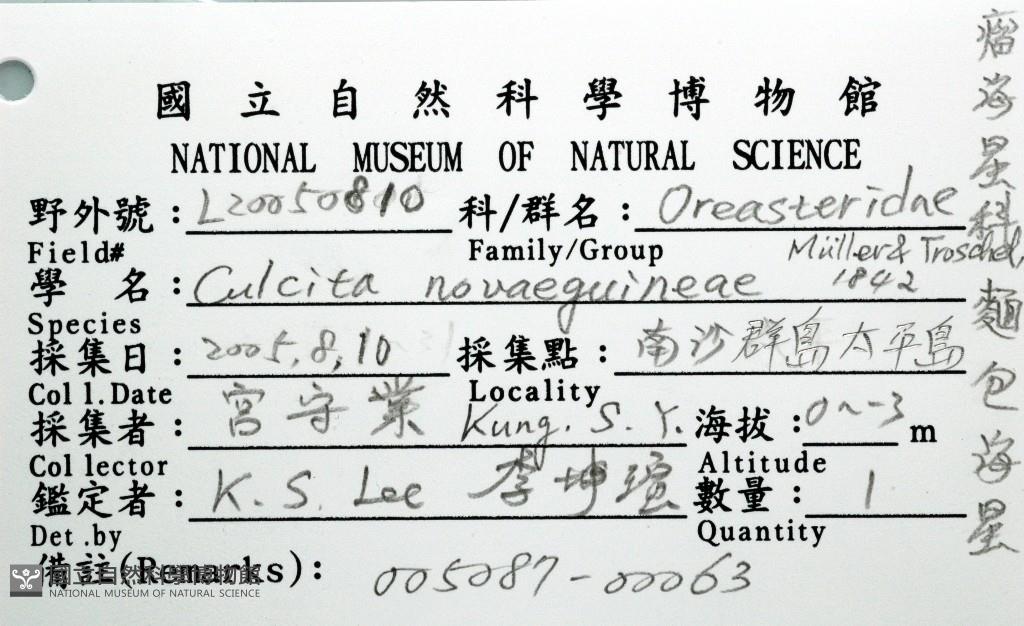 國立自然科學博物館
NATIONAL MUSEUM OF NATURAL SCIENCE
野外號：L20050810 科/群名：Oreasteridae
Field# Family/Group Müller & Troschel, 1842
學 名：Culcita novaeguineae
Species
採集日：2005,8,10 採集點：南沙群島太平島
Coll.Date Locality
採集者：宮守業 Kung. S. Y. 海拔：0~-3 m
Collector Altitude
鑑定者：K. S. Lee 李坤瑄 數量：1
Det.by Quantity
備註(Remarks)： 005087-00063
瘤海星科 麵包海星
國立自然科學博物館
NATIONAL MUSEUM OF NATURAL SCIENCE